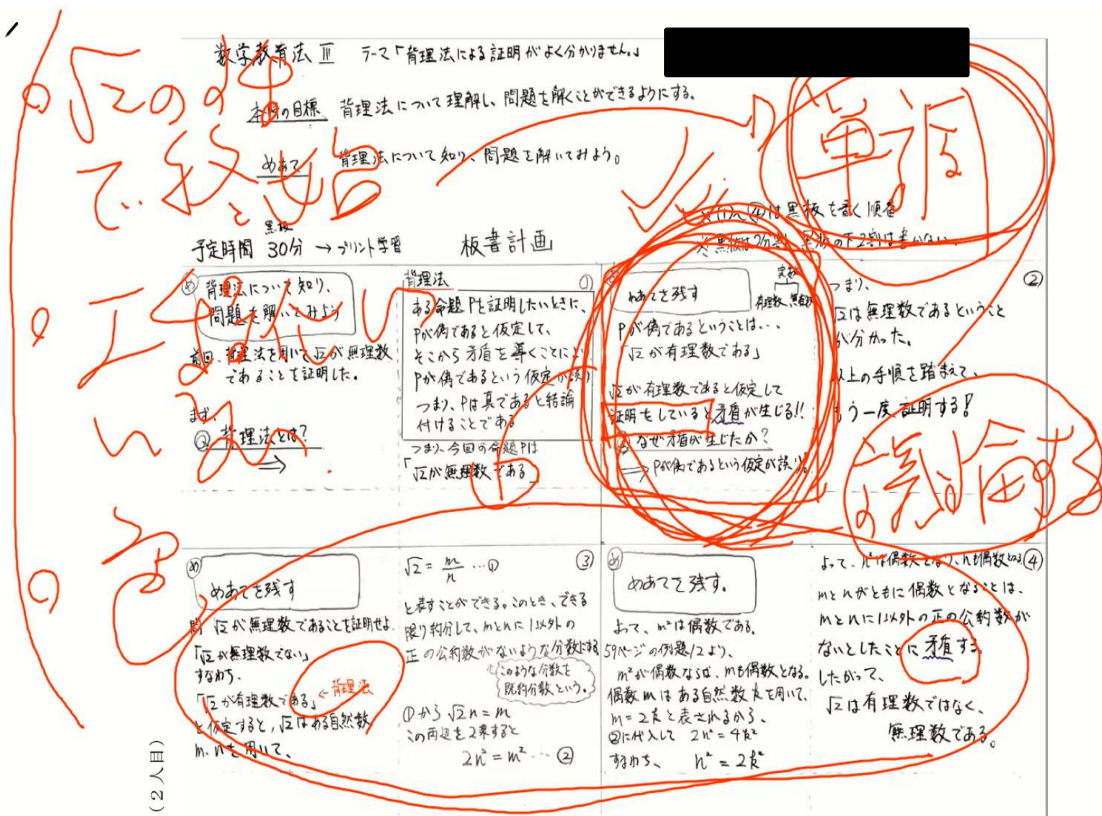 数学教育法Ⅲ テーマ「背理法による証明がよく分かりません。」
本時の目標 背理法について理解し、問題を解くことができるようにする。
めあて 背理法について知り、問題を解いてみよう。
黒板
予定時間 30分 → プリント学習 板書計画
※①〜④は黒板を書く順番
※黒板は2分割 黒板の下2割は書かない。
め 背理法について知り、
問題を解いてみよう
前回、背理法を用いて√2が無理数
であることを証明した。
まず、
Q 背理法とは?
⇒
背理法 ①
ある命題Pを証明したいときに、
Pが偽であると仮定して、
そこから矛盾を導くことにより
Pが偽であるという仮定が誤り
つまり、Pは真であると結論
付けることである
つまり、今回の命題Pは
「√2が無理数である」
めあてを残す
実数
有理数 無理数
Pが偽であるということは…
「√2が有理数である」
√2が有理数であると仮定して
証明をしていると矛盾が生じる!!
なぜ矛盾が生じたか?
⇒ Pが偽であるという仮定が誤り
②
つまり、
√2は無理数であるということ
が分かった。
以上の手順を踏まえて、
もう一度証明する!
め めあてを残す
問 √2が無理数であることを証明せよ
「√2が無理数でない」
すなわち、
「√2が有理数である」 ←背理法
と仮定すると、√2はある自然数
m、nを用いて、
√2 = m/n …① ③
と表すことができる。このとき、できる
限り約分して、mとnに1以外の
正の公約数がないような分数にする
このような分数を
既約分数という。
①から √2n = m
この両辺を2乗すると
2n² = m² … ②
め めあてを残す。
よって、m²は偶数である。
59ページの例題12より、
m²が偶数ならば、mも偶数となる。
偶数mはある自然数kを用いて、
m = 2kと表されるから、
②に代入して 2n² = 4k²
すなわち、 n² = 2k²
よって、n²は偶数となり、nも偶数となる ④
mとnがともに偶数となることは、
mとnに1以外の正の公約数が
ないとしたことに矛盾する
したがって、
√2は有理数ではなく、
無理数である。
(2人目)
√2のはなし
で終始
単調
議論する